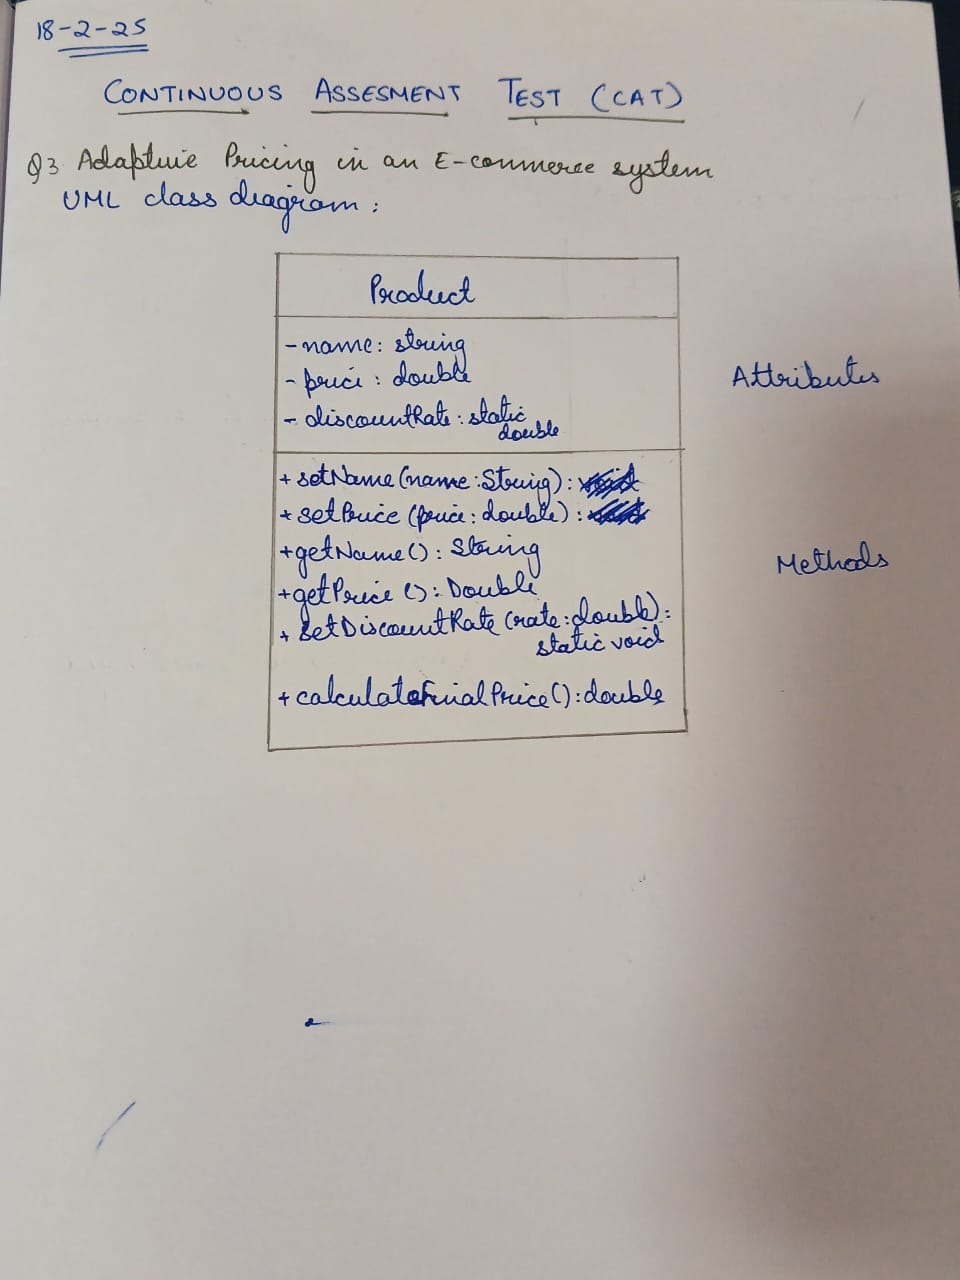 18-2-25
CONTINUOUS ASSESMENT TEST (CAT)
Q3. Adaptive Pricing in an E-commerce system
UML class diagram:
Product
- name: string
- price: double
- discountRate: static
double
Attributes
+ setName(name: String):
+ setPrice (price: double):
+ getName(): String
+ getPrice(): Double
+ setDiscountRate (rate: double):
static void
+ calculateFinalPrice(): double
Methods